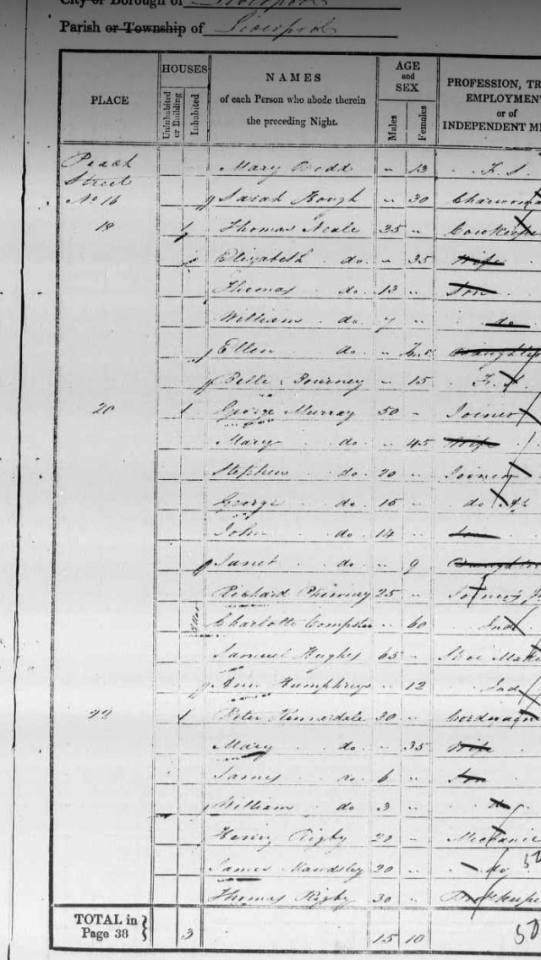 City or Borough of Liverpool
Parish or Township of Liverpool
PLACE
HOUSES
Uninhabited or Building
Inhabited
NAMES
of each Person who abode therein
the preceding Night.
AGE
and
SEX
Males
Females
PROFESSION, TR
EMPLOYMENT
or of
INDEPENDENT ME
Street
Mary Dodd " 13 F. S.
No 16 Sarah Hough " 30 Charwoma
18 1 Thomas Neale 35 " Cowkeeper
Elizabeth do. " 35 Wife
Thomas do. 13 " Son
William do 7 " do
Ellen do "
Belle " 15 F. S.
20 1 George Murray 50 " Joiner
Mary do " 45 Wife
Stephen do. 20 " Joiner
George do. 15 " do Ap
John do. 14 " Son
Janet do. " 9 Daughter
Richard 25 " Joiner
Charlotte " 60 Ind
Samuel Hughes 65 " Shoe Make
Ann Humphreys " 12 Ind
22 1 Peter 30 "
Mary do " 35 Wife
James do 6 " Son
William do 3 " do
Henry Rigby 20 " Mechanic
James 20 " do
Thomas Rigby 30 "
TOTAL in
Page 38 } 3 15 10